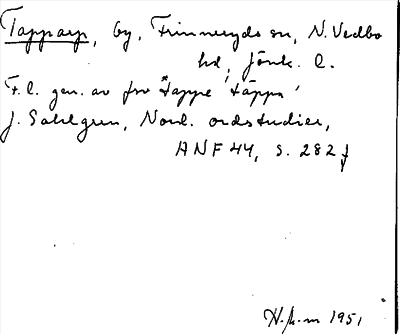 Tapparp, by, Frinnaryds sn, N. Vedbo
hd, Jönk. l.
F.l. gen. av fsv *tappe 'täppa'
J. Sahlgren, Nord. ordstudier,
ANF 44, s. 282 f
1951